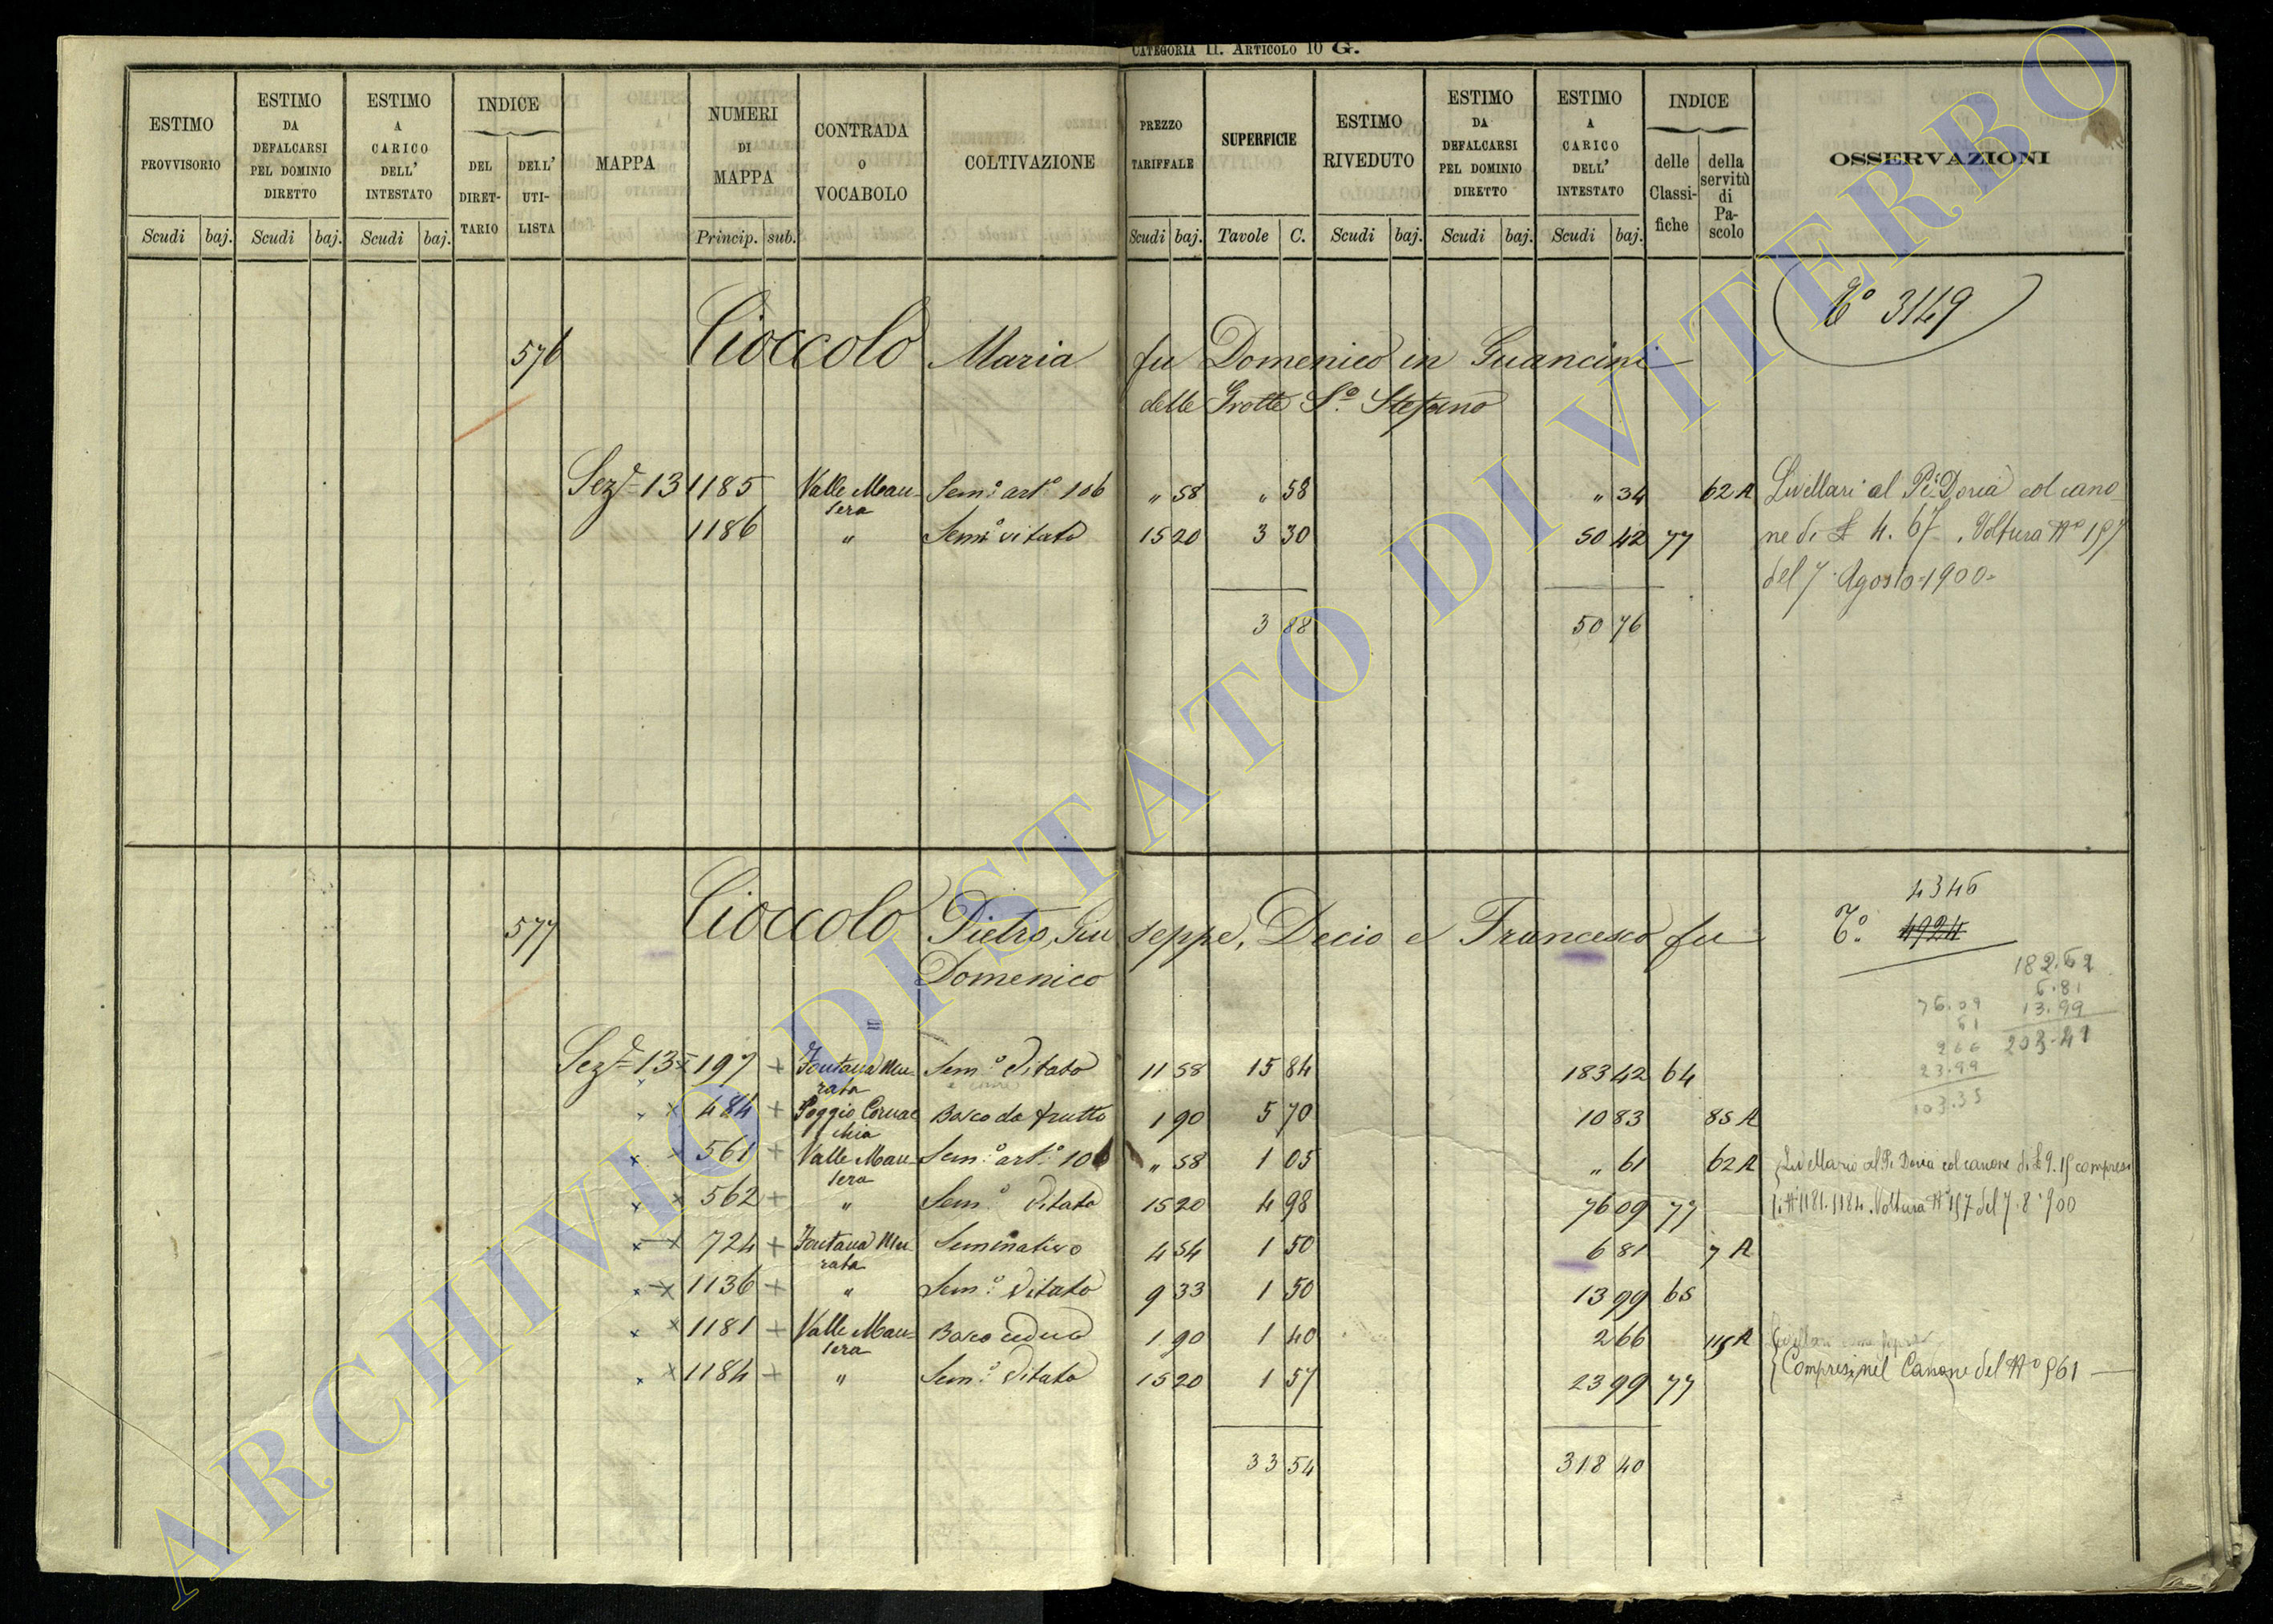 CATEGORIA II. ARTICOLO 10 G.
ESTIMO PROVVISORIO
ESTIMO DA DEFALCARSI PEL DOMINIO DIRETTO
ESTIMO A CARICO DELL' INTESTATO
INDICE
DEL DIRET-TARIO
DELL' UTI-LISTA
MAPPA
NUMERI DI MAPPA
CONTRADA O VOCABOLO
COLTIVAZIONE
PREZZO TARIFFALE
SUPERFICIE
ESTIMO RIVEDUTO
ESTIMO DA DEFALCARSI PEL DOMINIO DIRETTO
ESTIMO A CARICO DELL' INTESTATO
INDICE
delle Classi-fiche
della servitù di Pa-scolo
OSSERVAZIONI
Scudi baj. Scudi baj. Scudi baj. Princip. sub. Scudi baj. Tavole C. Scudi baj. Scudi baj. Scudi baj.
Tº 3149
576 Cioccolo Maria fu Domenico in Guancini
delle Grotte Sº Stefano
Sezᵉ 13 1185 Valle Mau- Semº artº 106 " 58 " 58 " 34 62 A Livellari al Pᵉ Doria col cano
sera
1186 " Semº vitato 15 20 3 30 50 42 77 ne di £ 4. 67. Voltura Nº 157
del 7 Agosto 1900
3 88 50 76
577 Cioccolo Pietro, Giuseppe, Decio e Francesco fu Tº 4924
4346
Domenico
182.62
6.81
76.09 13.99
61 203.41
266
23.99
103.35
Sezᵉ 13 x 197 + Fontana Mu- Semº Vitato 11 58 15 84 183 42 64
rata
x 484 + Poggio Cornac Bosco da frutto 1 90 5 70 10 83 85 A
chia
x 561 + Valle Mau- Semº artº 106 " 58 1 05 " 61 62 A Livellario al Pᵉ Doria col canone di £ 9.15 compresi
sera
x 562 + " Semº Vitato 15 20 4 98 76 09 77 i Nⁱ 1181. 1184. Voltura Nº 157 del 7. 8. 900
x 724 + Fontana Mu- Seminativo 4 54 1 50 6 81 7 A
rata
x 1136 + " Semº Vitato 9 33 1 50 13 99 65
x 1181 + Valle Mau- Bosco ceduo 1 90 1 40 2 66 115 A
sera
x 1184 + " Semº Vitato 15 20 1 57 23 99 77 Compresi nel Canone del Nº 561
33 54 318 40
ARCHIVIO DI STATO DI VITERBO